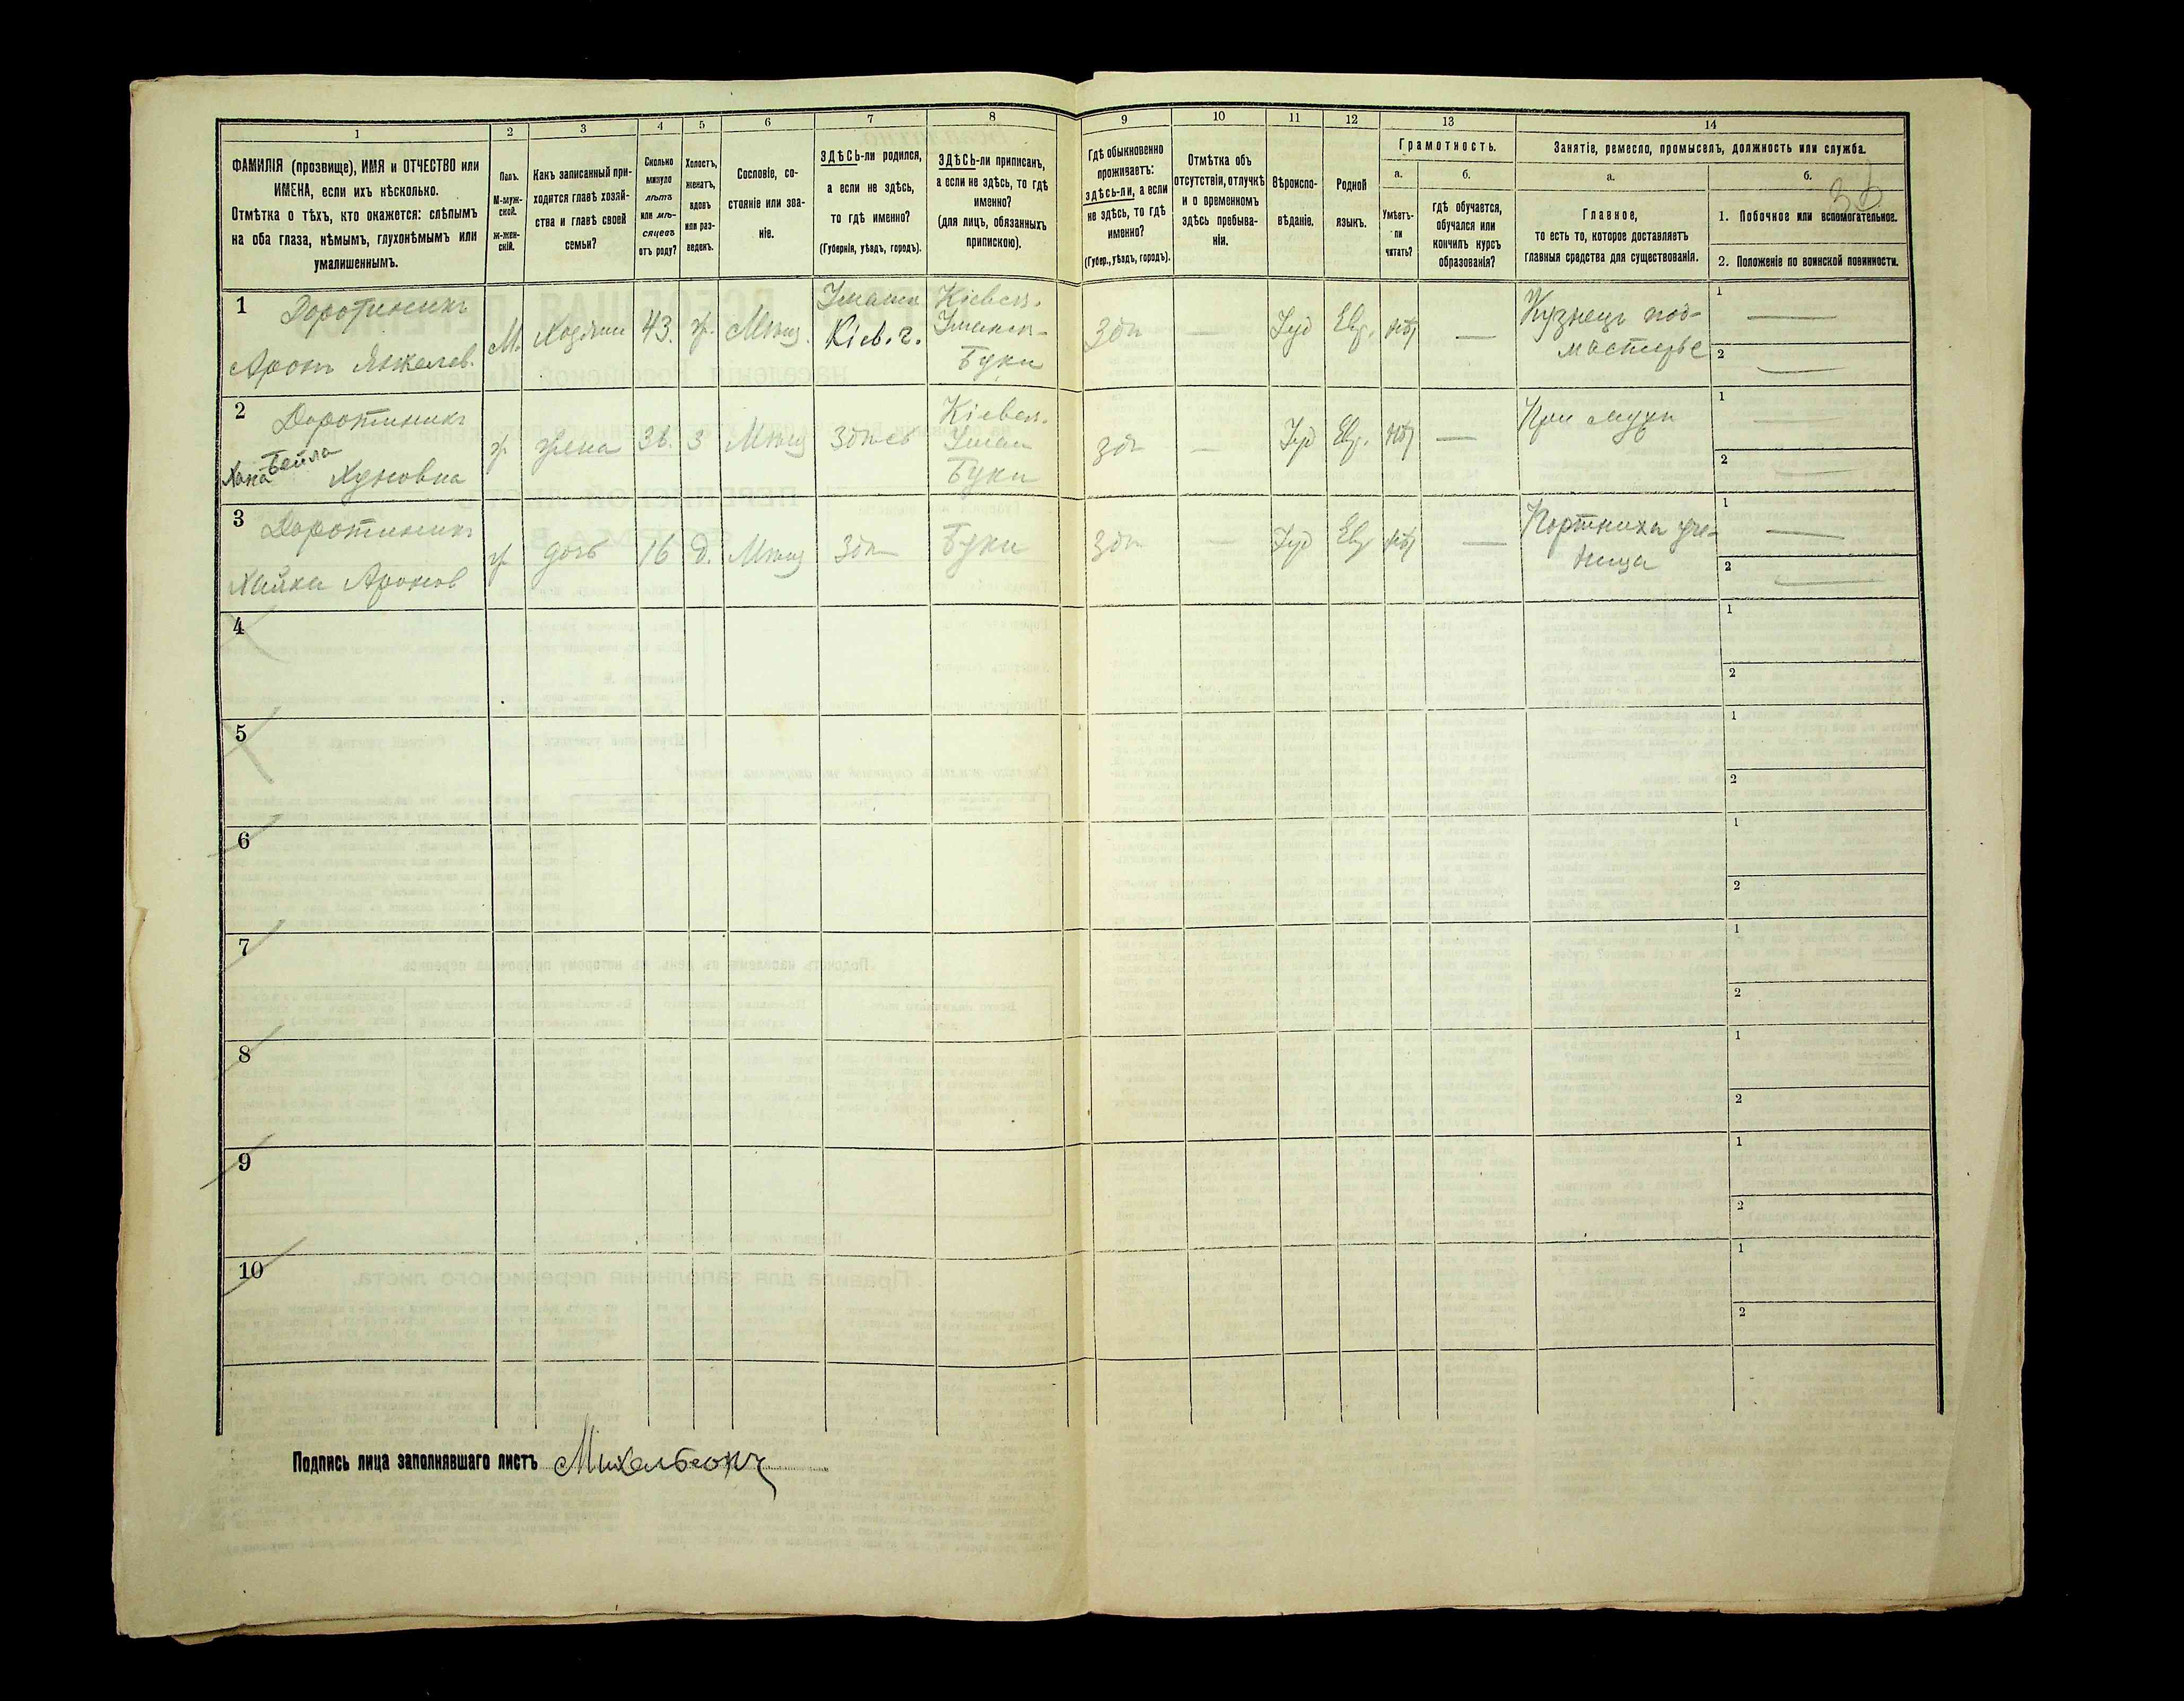 1 2 3 4 5 6 7 8 9 10 11 12 13 14
ФАМИЛІЯ (прозвище), ИМЯ и ОТЧЕСТВО или
ИМЕНА, если ихъ нѣсколько.
Отмѣтка о тѣхъ, кто окажется: слѣпымъ
на оба глаза, нѣмымъ, глухонѣмымъ или
умалишеннымъ.
Полъ.
М-муж-
ской.
Ж-жен-
скій.
Какъ записанный при-
ходится главѣ хозяй-
ства и главѣ своей
семьи?
Сколько
минуло
лѣтъ
или мѣ-
сяцевъ
отъ роду?
Холостъ,
женатъ,
вдовъ
или раз-
веденъ.
Сословіе, со-
стояніе или зва-
ніе.
ЗДѢСЬ-ли родился,
а если не здѣсь,
то гдѣ именно?
(Губернія, уѣздъ, городъ).
ЗДѢСЬ-ли приписанъ,
а если не здѣсь, то гдѣ
именно?
(для лицъ, обязанныхъ
припискою).
Гдѣ обыкновенно
проживаетъ:
здѣсь-ли, а если
не здѣсь, то гдѣ
именно?
(Губер., уѣздъ, городъ).
Отмѣтка объ
отсутствіи, отлучкѣ
и о временномъ
здѣсь пребыва-
ніи.
Вѣроиспо-
вѣданіе.
Родной
языкъ.
Грамотность.
а.
Умѣетъ-
ли
читать?
б.
гдѣ обучается,
обучался или
кончилъ курсъ
образованія?
Занятіе, ремесло, промыселъ, должность или служба.
а.
Главное,
то есть то, которое доставляетъ
главныя средства для существованія.
б.
1. Побочное или вспомогательное.
2. Положеніе по воинской повинности.
1 Доротинскъ
Аронъ Янкелев.
М. Хозяинъ 43. ж. Мѣщ.
Умань
Кіев. г.
Кіевск.
Уманск-
Буки
здѣ — Іуд Евр. нѣт —
Кузнецъ под-
мастерье
1 —
2 —
2 Доротинскъ
Хана Бейла
Хуновна
ж жена 36. з Мѣщ здѣсь
Кіевск.
Уман
Буки
здѣ — Іуд Евр. нѣт —
При мужѣ
1 —
2 —
3 Доротинскъ
Хайка Аронов
ж дочь 16 д. Мѣщ здѣ Буки
здѣ — Іуд Евр нѣт —
Портниха уче-
ница
1 —
2 —
4 1
2
5 1
2
6 1
2
7 1
2
8 1
2
9 1
2
10 1
2
Подпись лица заполнявшаго листъ